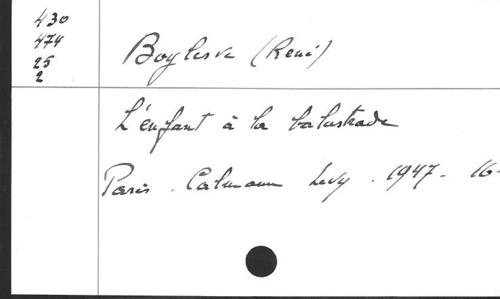 430
474
25
2
Boylesve (René)
L'enfant à la balustrade
Paris. Calmann Levy. 1947. 16-